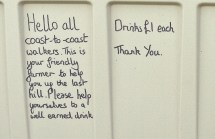 Hello all
coast-to-coast
walkers. This is
your friendly
farmer to help
you up the last
hill. Please help
yourselves to a
well earned drink
Drinks £1 each
Thank You.